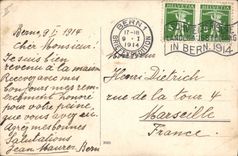 Bern, 9 I 1914
Cher Monsieur.
Je suis bien
revenu a la maison
Recevez mes
remerciements
pour votre peine,
que vous avez eu.
Avec mes bonnes
Salutations
Jean Maurer Bern
HELVETIA HELVETIA
BERN 1
17-18
9 I
1914
IN BERN. 1914
Monsieur
Henri Dietrich
rue de la tour 4
Marseille
France.